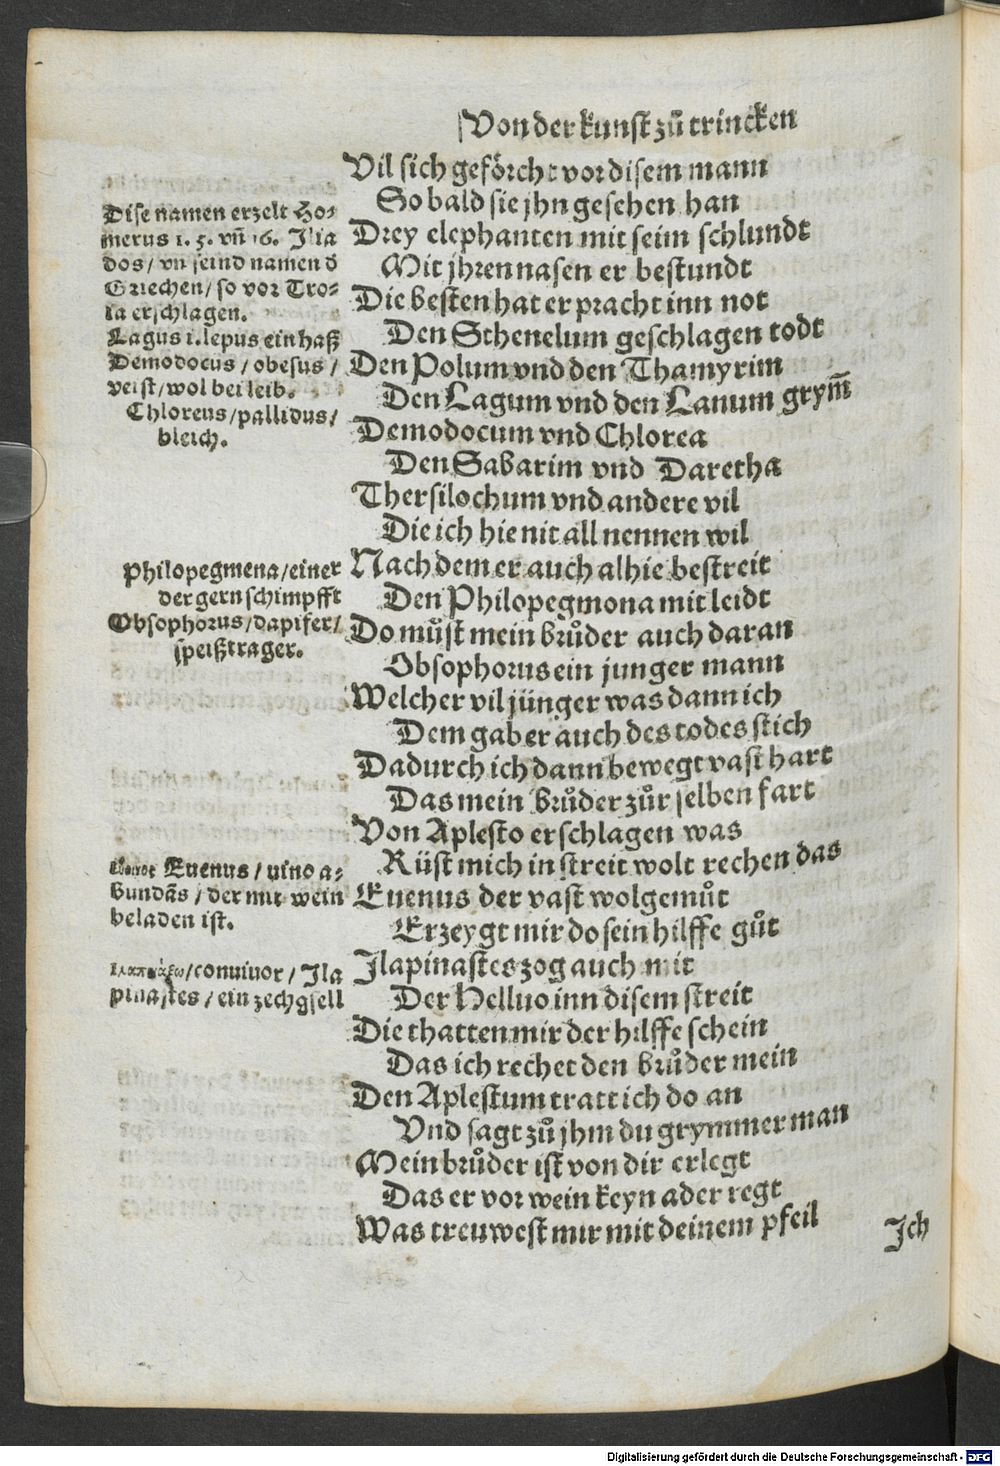 Von der kunst zů trincken
Vil sich geförcht vor disem mann
So bald sie jhn gesehen han
Drey elephanten mit seim schlundt
Mit jhren nasen er bestundt
Die besten hat er pracht inn not
Den Sthenelum geschlagen todt
Den Polum vnd den Thamyrim
Den Lagum vnd den Lanum grym̃
Demodocum vnd Chlorea
Den Sabarim vnd Daretha
Thersilochum vnd andere vil
Die ich hie nit all nennen wil
Nach dem er auch alhie bestreit
Den Philopegmona mit leidt
Do můst mein brůder auch daran
Obsophorus ein junger mann
Welcher vil jünger was dann ich
Dem gab er auch des todes stich
Dadurch ich dann bewegt vast hart
Das mein brůder zůr selben fart
Von Aplesto erschlagen was
Rüst mich in streit wolt rechen das
Euenus der vast wolgemůt
Erzeygt mir do sein hilffe gůt
Ilapinastes zog auch mit
Der Helluo inn disem streit
Die thatten mir der hilffe schein
Das ich rechet den brůder mein
Den Aplestum tratt ich do an
Vnd sagt zů jhm du grymmer man
Mein brůder ist von dir erlegt
Das er vor wein keyn ader regt
Was treuwest mir mit deinem pfeil
Ich
Dise namen erzelt Ho-
merus 1. 5. vñ 16. Ilia
dos / vn seind namen d
Griechen / so vor Tro-
ia erschlagen.
Lagus i. lepus ein haß
Demodocus / obesus /
veist / wol bei leib.
Chloreus / pallidus /
bleich.
Philopegmena / einer
der gern schimpfft
Obsophorus / dapifer /
speißtrager.
Euenus / uino a-
bundãs / der mit wein
beladen ist.
/ conuiuor / Ila
pinastes / ein zechgsell
Digitalisierung gefördert durch die Deutsche Forschungsgemeinschaft - DFG